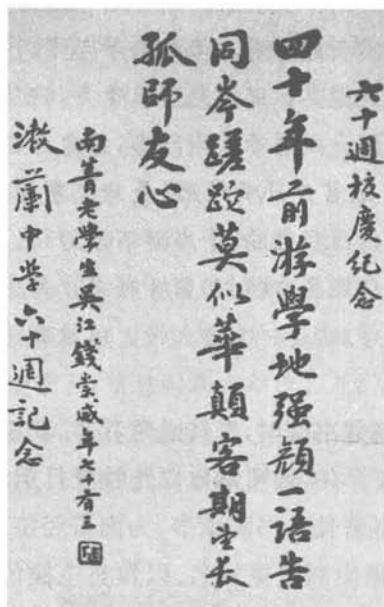 六十週校慶紀念
四十年前游學地强顏一語告
同岑蹉跎莫似華顛客期望長
孤師友心
南菁老學生吳江錢崇威年七十有三
漱蘭中學六十週記念